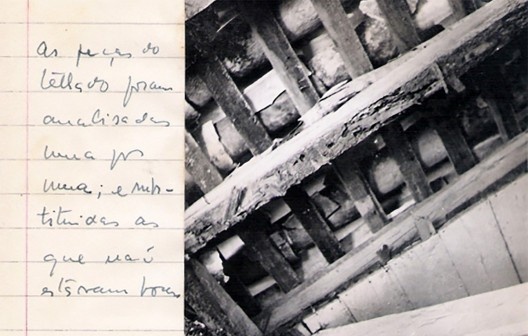 As peças do
telhado foram
analisadas
uma por
uma; e subs-
tituidas as
que não
estavam boas